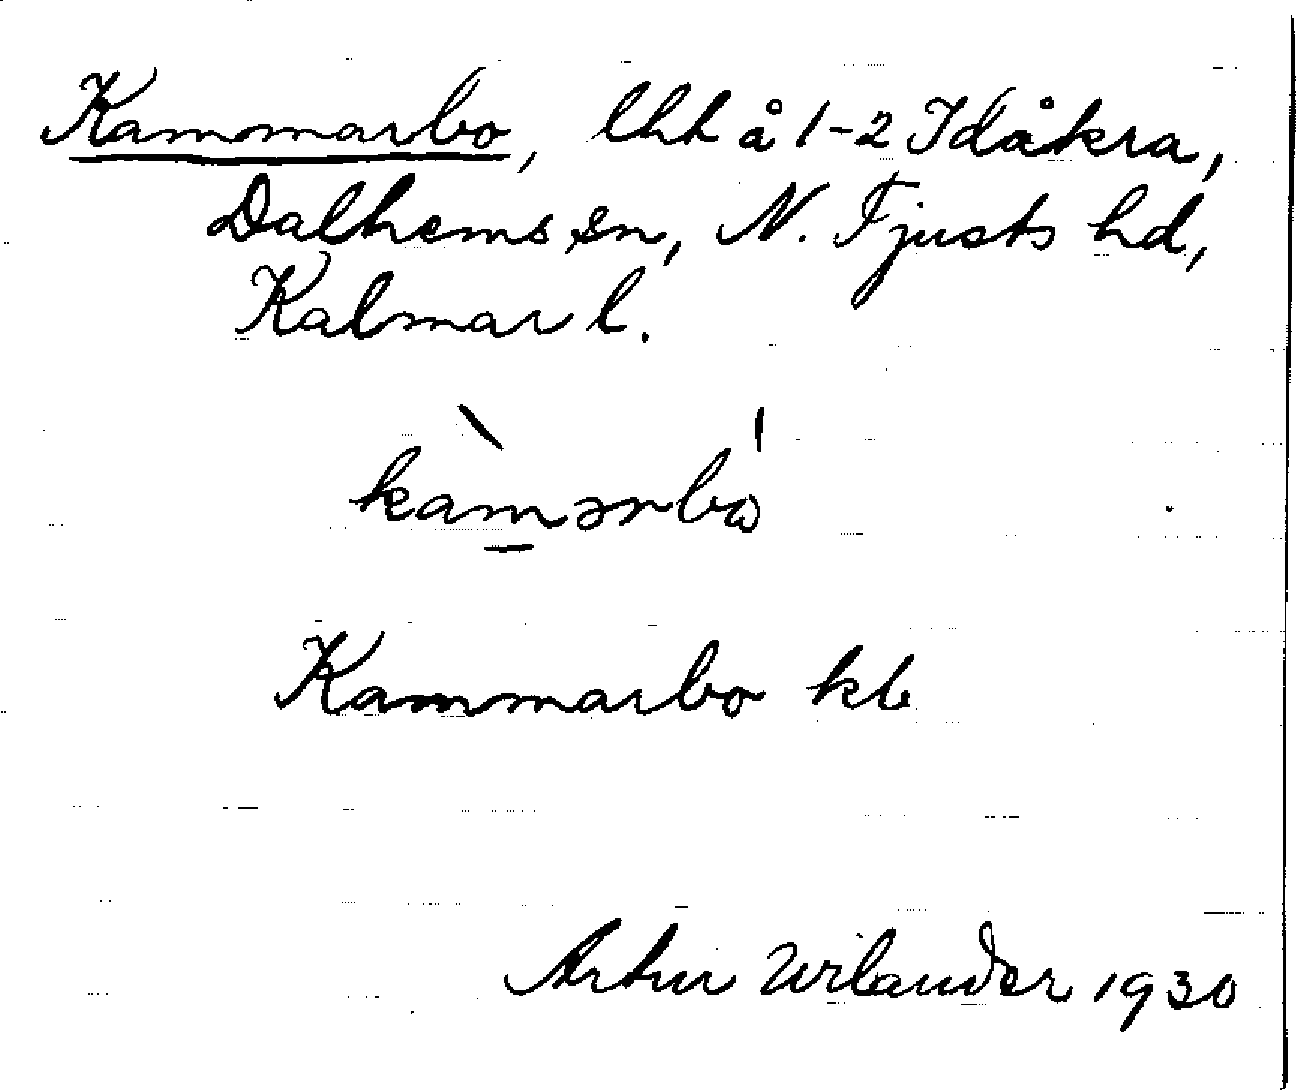 Kammarbo, lht å 1-2 Idåkra,
Dalhems sn, N. Tjusts hd,
Kalmar l.
kàmərbó
Kammarbo kb
Artur Wilander 1930